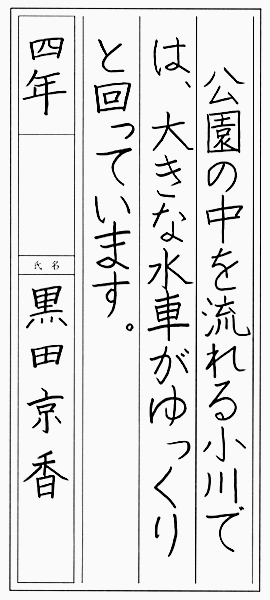 公園の中を流れる小川で
は、大きな水車がゆっくり
と回っています。
四年
氏名
黒田京香